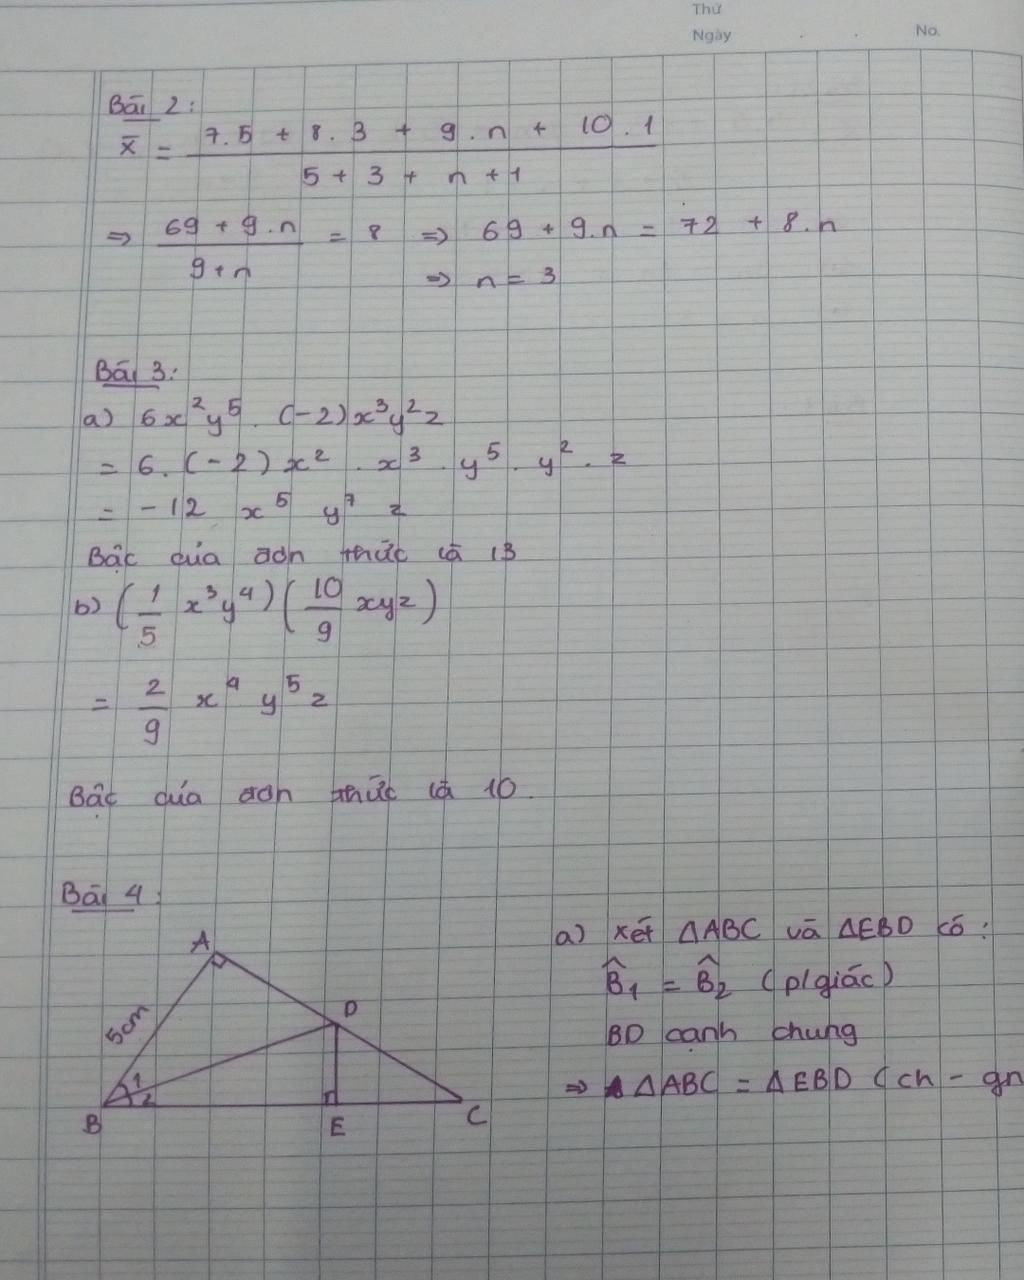 Thứ
Ngày . . No.
Bài 2:
x̄ = (7.5 + 8.3 + 9.n + 10.1) / (5 + 3 + n + 1)
⇒ (69 + 9.n) / (9 + n) = 8 ⇒ 69 + 9.n = 72 + 8.n
⇒ n = 3
Bài 3:
a) 6x²y⁵ . (-2)x³y²z
= 6.(-2)x² . x³ . y⁵ . y² . z
= -12 x⁵ y⁷ z
Bậc của đơn thức là 13
b) (1/5 x³y⁴)(10/9 xyz)
= 2/9 x⁴ y⁵ z
Bậc của đơn thức là 10.
Bài 4:
a) Xét ΔABC và ΔEBD có:
B̂₁ = B̂₂ (p/giác)
BD cạnh chung
⇒ ΔABC = ΔEBD (ch - gn
A
D
5cm
1
2
B
E
C